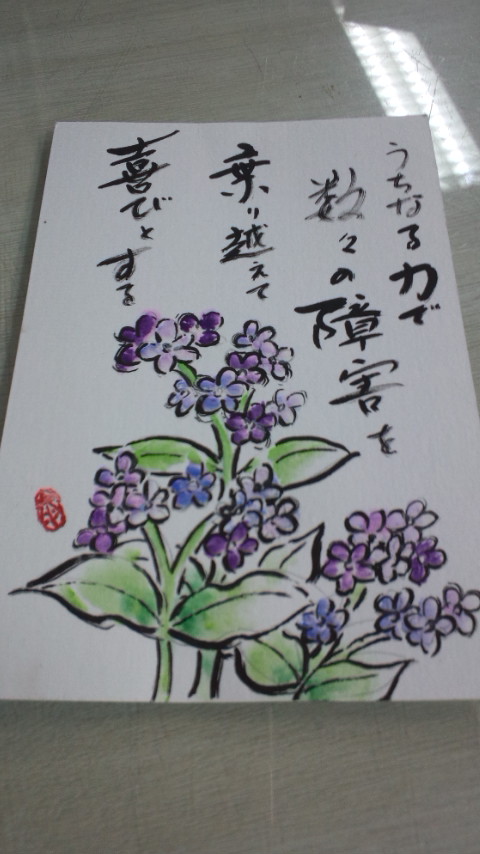 うちなる力で
数々の障害を
乗り越えて
喜びとする